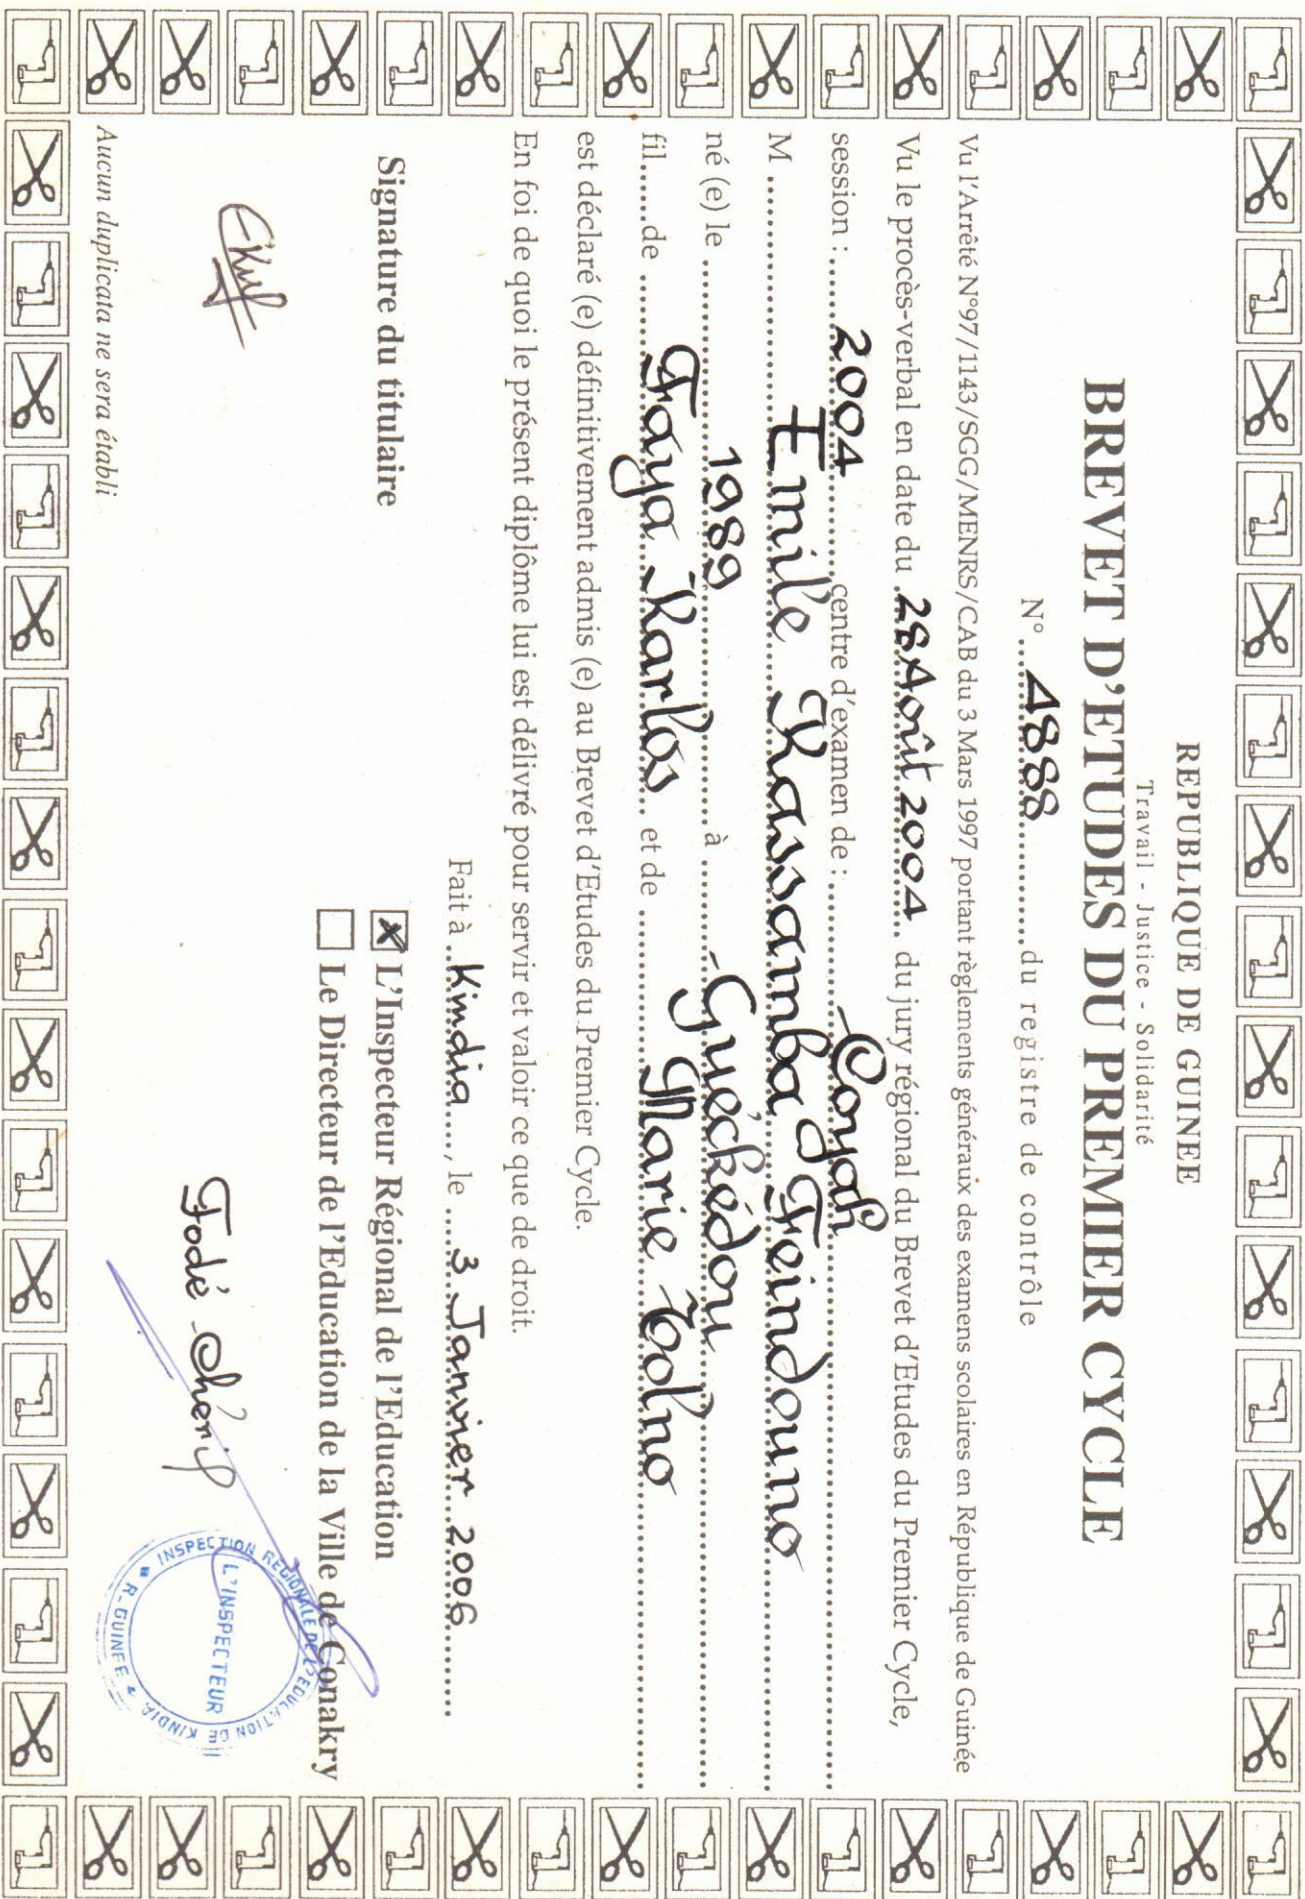 REPUBLIQUE DE GUINEE
Travail - Justice - Solidarité
BREVET D'ETUDES DU PREMIER CYCLE
N° ....4888............du registre de contrôle
Vu l'Arrêté N°97/1143/SGG/MENRS/CAB du 3 Mars 1997 portant règlements généraux des examens scolaires en République de Guinée
Vu le procès-verbal en date du .28 Août 2004.. du jury régional du Brevet d'Etudes du Premier Cycle,
session :......2004............centre d'examen de :............Coyah............
M ............Emile Kassamba Feindouno............
né (e) le ............1989............ à ............Guéckédou............
fil......de ............Faya Karlos.... et de ............Marie Tolno............
est déclaré (e) définitivement admis (e) au Brevet d'Etudes du Premier Cycle.
En foi de quoi le présent diplôme lui est délivré pour servir et valoir ce que de droit.
Fait à ..Kindia...., le ....3 Janvier 2006............
Signature du titulaire
X L'Inspecteur Régional de l'Education
Le Directeur de l'Education de la Ville de Conakry
Fodé Chérif
INSPECTION REGIONALE DE L'EDUCATION DE KINDIA
L'INSPECTEUR
R-GUINEE
Aucun duplicata ne sera établi